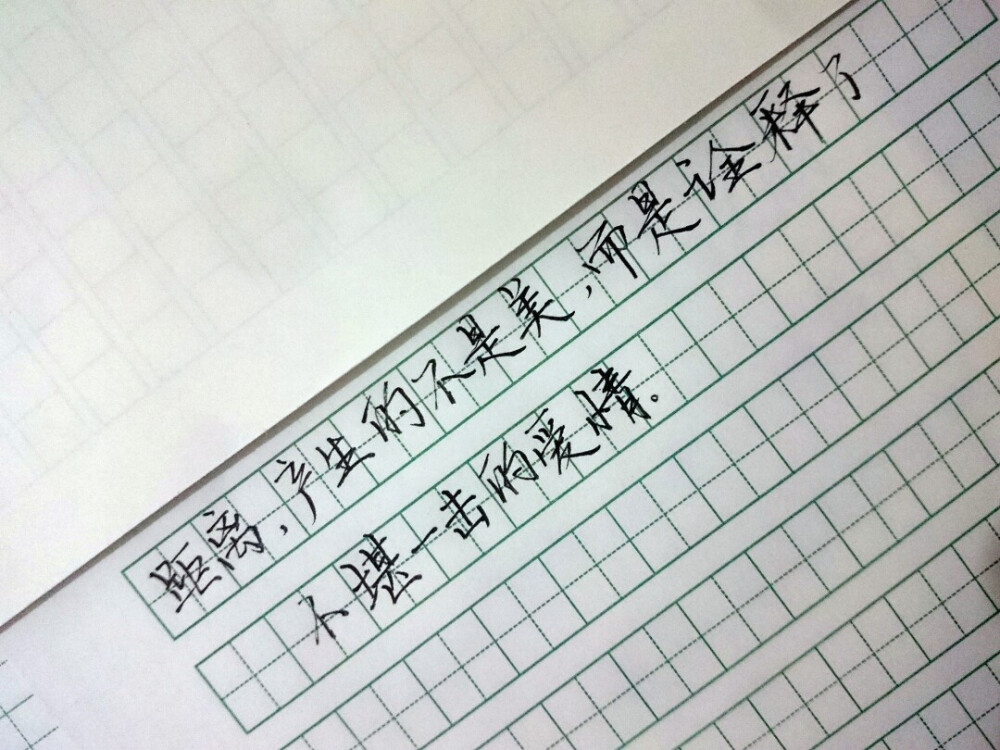 距离,产生的不是美,而是诠释了
不堪一击的爱情。